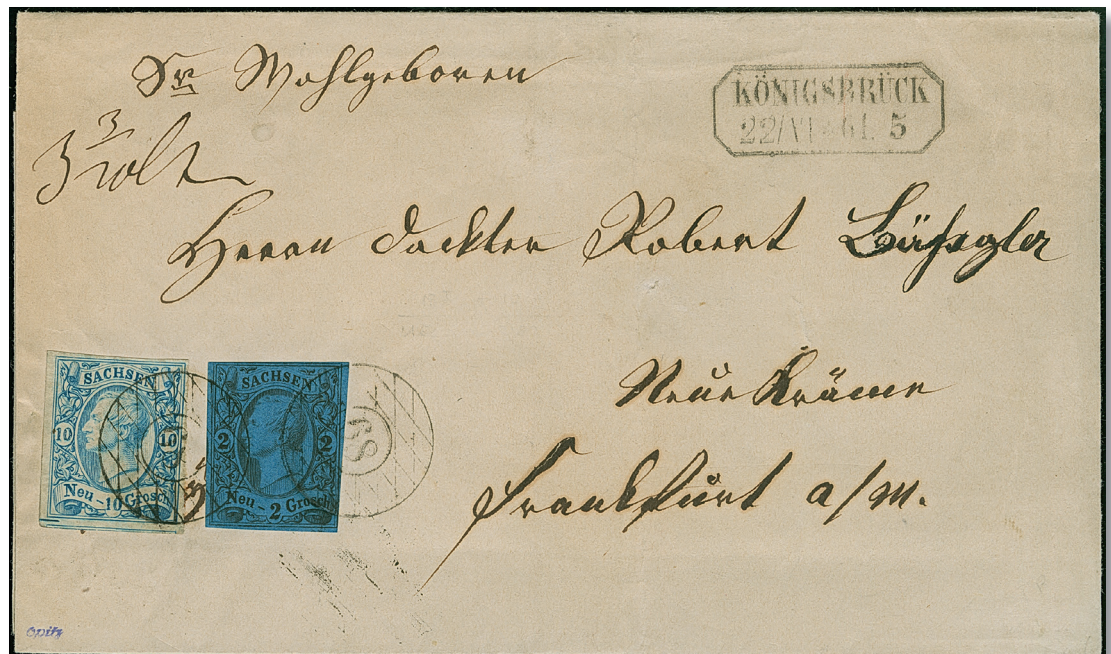 Sr Wohlgeboren
KÖNIGSBRÜCK
22/VI 61. 5
3
Herrn Dockter Robert
Neue Kräme
Frankfurt a/M.
SACHSEN
10 10
Neu-10 Grosch
SACHSEN
2 2
Neu-2 Grosch
68
Opitz